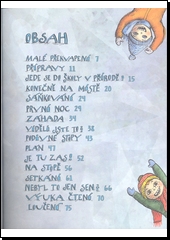 OBSAH
MALÉ PŘEKVAPENÍ 7
PŘÍPRAVY 11
JEDE JE DO ŠKOLY V PŘÍRODĚ! 15
KONEČNĚ NA MÍSTĚ 20
SÁŇKOVÁNÍ 24
PRVNÍ NOC 29
ZÁHADA 34
VIDĚLI JSTE TO? 38
PODIVNÉ STOPY 43
PLÁN 47
JE TU ZAS! 52
NA STOPĚ 56
SETKÁNÍ 61
NEBYL TO JEN SEN! 66
VÝUKA ČTENÍ 70
LOUČENÍ 75